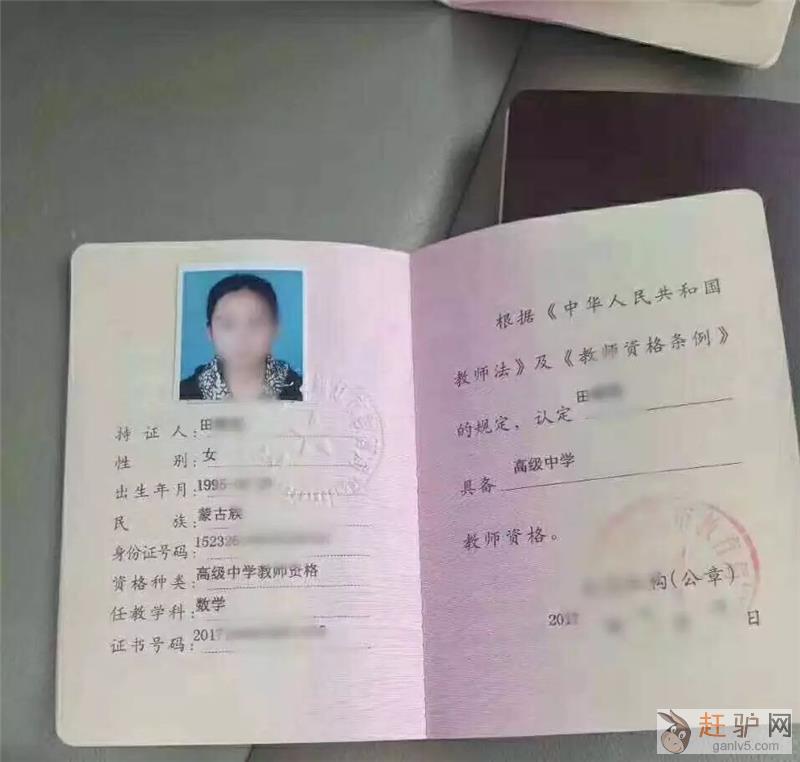 持证人：田
性别：女
出生年月：1995
民族：蒙古族
身份证号码：152326
资格种类：高级中学教师资格
任教学科：数学
证书号码：2017
根据《中华人民共和国
教师法》及《教师资格条例》
的规定，认定 田
具备 高级中学
教师资格。
构(公章)
2017
日
赶驴网
ganlv5.com